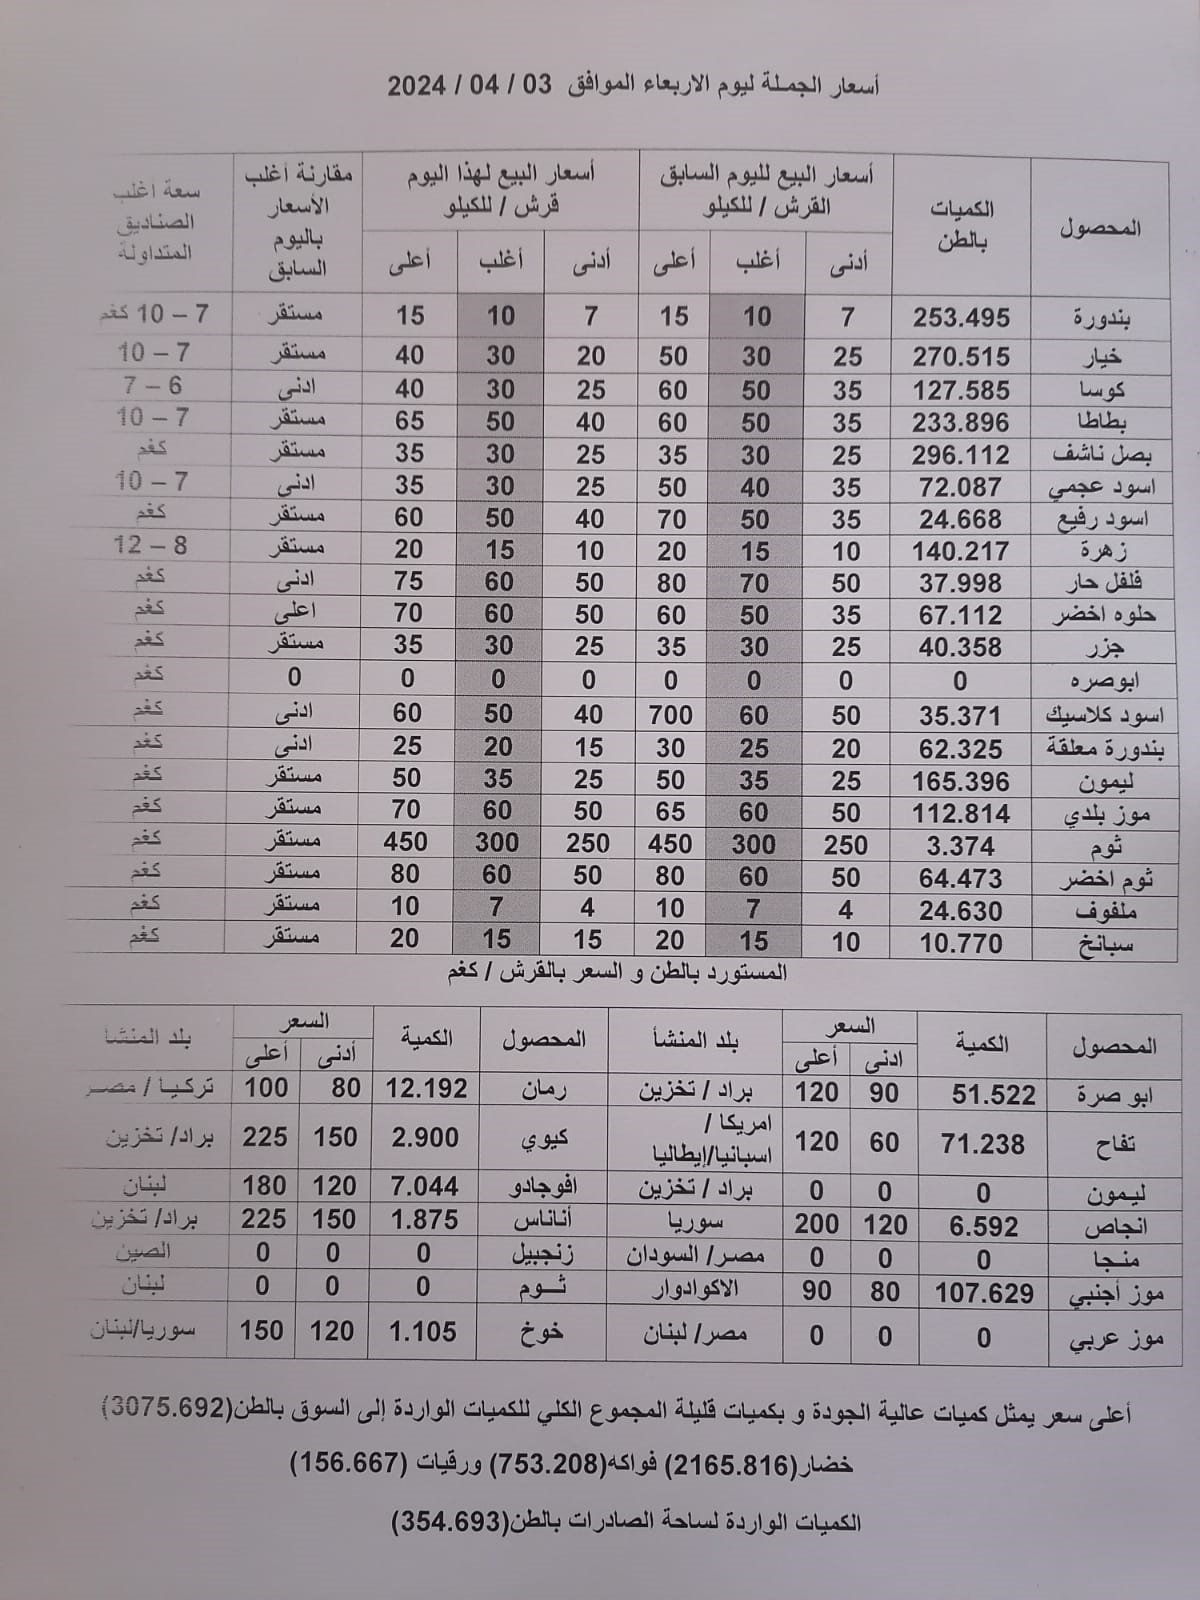 أسعار الجملة ليوم الاربعاء الموافق 03 / 04 / 2024
المحصول | الكميات بالطن | أسعار البيع لليوم السابق القرش / للكيلو | أسعار البيع لهذا اليوم قرش / للكيلو | مقارنة أغلب الأسعار باليوم السابق | سعة أغلب الصناديق المتداولة
أدنى | أغلب | أعلى | أدنى | أغلب | أعلى
بندورة | 253.495 | 7 | 10 | 15 | 7 | 10 | 15 | مستقر | 7 – 10 كغم
خيار | 270.515 | 25 | 30 | 50 | 20 | 30 | 40 | مستقر | 7 – 10
كوسا | 127.585 | 35 | 50 | 60 | 25 | 30 | 40 | ادنى | 6 – 7
بطاطا | 233.896 | 35 | 50 | 60 | 40 | 50 | 65 | مستقر | 7 – 10
بصل ناشف | 296.112 | 25 | 30 | 35 | 25 | 30 | 35 | مستقر | كغم
اسود عجمي | 72.087 | 35 | 40 | 50 | 25 | 30 | 35 | ادنى | 7 – 10
اسود رفيع | 24.668 | 35 | 50 | 70 | 40 | 50 | 60 | مستقر | كغم
زهرة | 140.217 | 10 | 15 | 20 | 10 | 15 | 20 | مستقر | 8 – 12
فلفل حار | 37.998 | 50 | 70 | 80 | 50 | 60 | 75 | ادنى | كغم
حلوه اخضر | 67.112 | 35 | 50 | 60 | 50 | 60 | 70 | اعلى | كغم
جزر | 40.358 | 25 | 30 | 35 | 25 | 30 | 35 | مستقر | كغم
ابوصره | 0 | 0 | 0 | 0 | 0 | 0 | 0 | 0 | كغم
اسود كلاسيك | 35.371 | 50 | 60 | 700 | 40 | 50 | 60 | ادنى | كغم
بندورة معلقة | 62.325 | 20 | 25 | 30 | 15 | 20 | 25 | ادنى | كغم
ليمون | 165.396 | 25 | 35 | 50 | 25 | 35 | 50 | مستقر | كغم
موز بلدي | 112.814 | 50 | 60 | 65 | 50 | 60 | 70 | مستقر | كغم
ثوم | 3.374 | 250 | 300 | 450 | 250 | 300 | 450 | مستقر | كغم
ثوم اخضر | 64.473 | 50 | 60 | 80 | 50 | 60 | 80 | مستقر | كغم
ملفوف | 24.630 | 4 | 7 | 10 | 4 | 7 | 10 | مستقر | كغم
سبانخ | 10.770 | 10 | 15 | 20 | 15 | 15 | 20 | مستقر | كغم
المستورد بالطن و السعر بالقرش / كغم
المحصول | الكمية | السعر | بلد المنشأ | المحصول | الكمية | السعر | بلد المنشأ
ادنى | أعلى | أدنى | أعلى
ابو صرة | 51.522 | 90 | 120 | براد / تخزين | رمان | 12.192 | 80 | 100 | تركيا / مصر
تفاح | 71.238 | 60 | 120 | امريكا / اسبانيا/إيطاليا | كيوي | 2.900 | 150 | 225 | براد/ تخزين
ليمون | 0 | 0 | 0 | براد / تخزين | افوجادو | 7.044 | 120 | 180 | لبنان
انجاص | 6.592 | 120 | 200 | سوريا | أناناس | 1.875 | 150 | 225 | براد/ تخزين
منجا | 0 | 0 | 0 | مصر/ السودان | زنجبيل | 0 | 0 | 0 | الصين
موز أجنبي | 107.629 | 80 | 90 | الاكوادوار | ثوم | 0 | 0 | 0 | لبنان
موز عربي | 0 | 0 | 0 | مصر/ لبنان | خوخ | 1.105 | 120 | 150 | سوريا/لبنان
أعلى سعر يمثل كميات عالية الجودة و بكميات قليلة المجموع الكلي للكميات الواردة إلى السوق بالطن(3075.692)
خضار(2165.816) فواكه(753.208) ورقيات (156.667)
الكميات الواردة لساحة الصادرات بالطن(354.693)